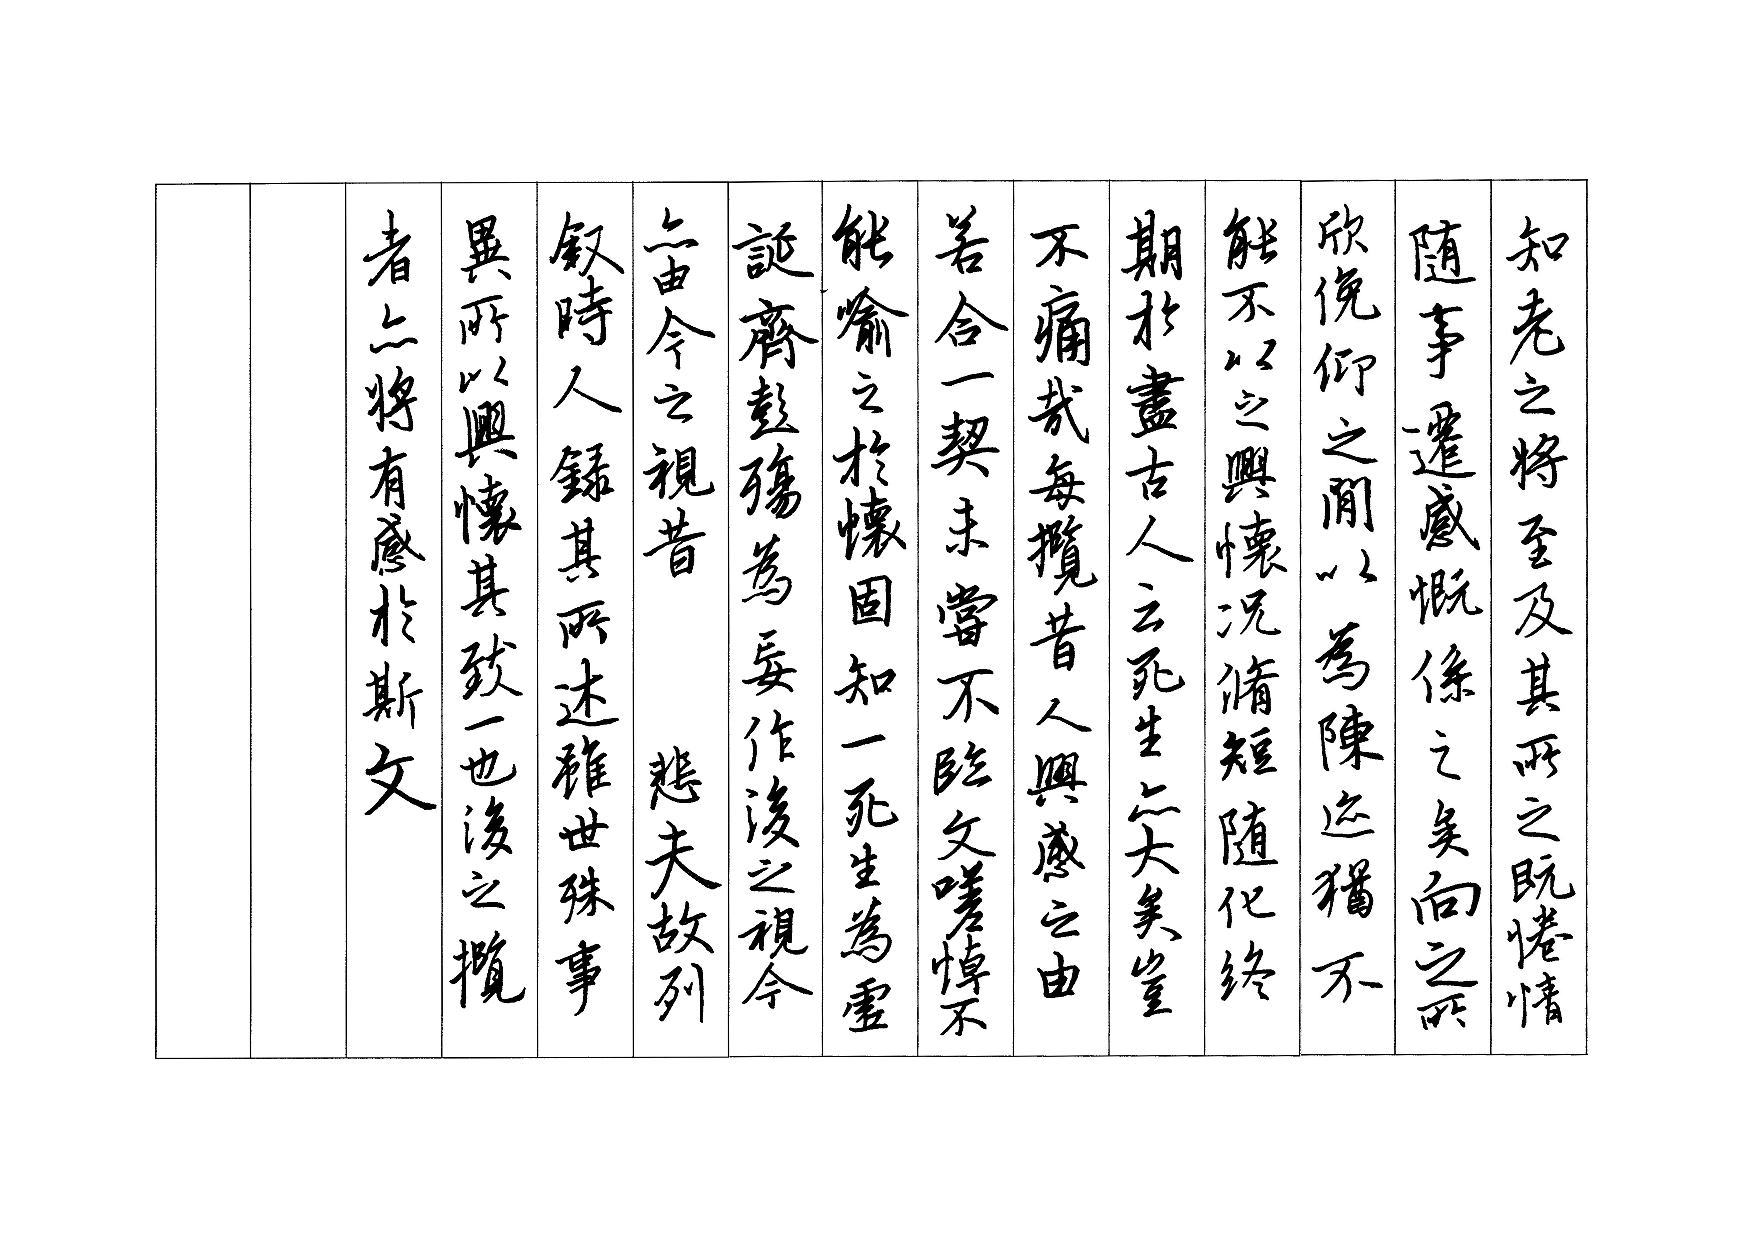 知老之将至及其所之既惓情
随事遷感慨係之矣向之所
欣俛仰之閒以為陳迹猶不
能不以之興懷况脩短随化終
期於盡古人云死生亦大矣豈
不痛哉每攬昔人興感之由
若合一契未嘗不臨文嗟悼不
能喻之於懷固知一死生為虛
誕齊彭殤為妄作後之視今
亦由今之視昔 悲夫故列
叙時人録其所述雖世殊事
異所以興懷其致一也後之攬
者亦將有感於斯文